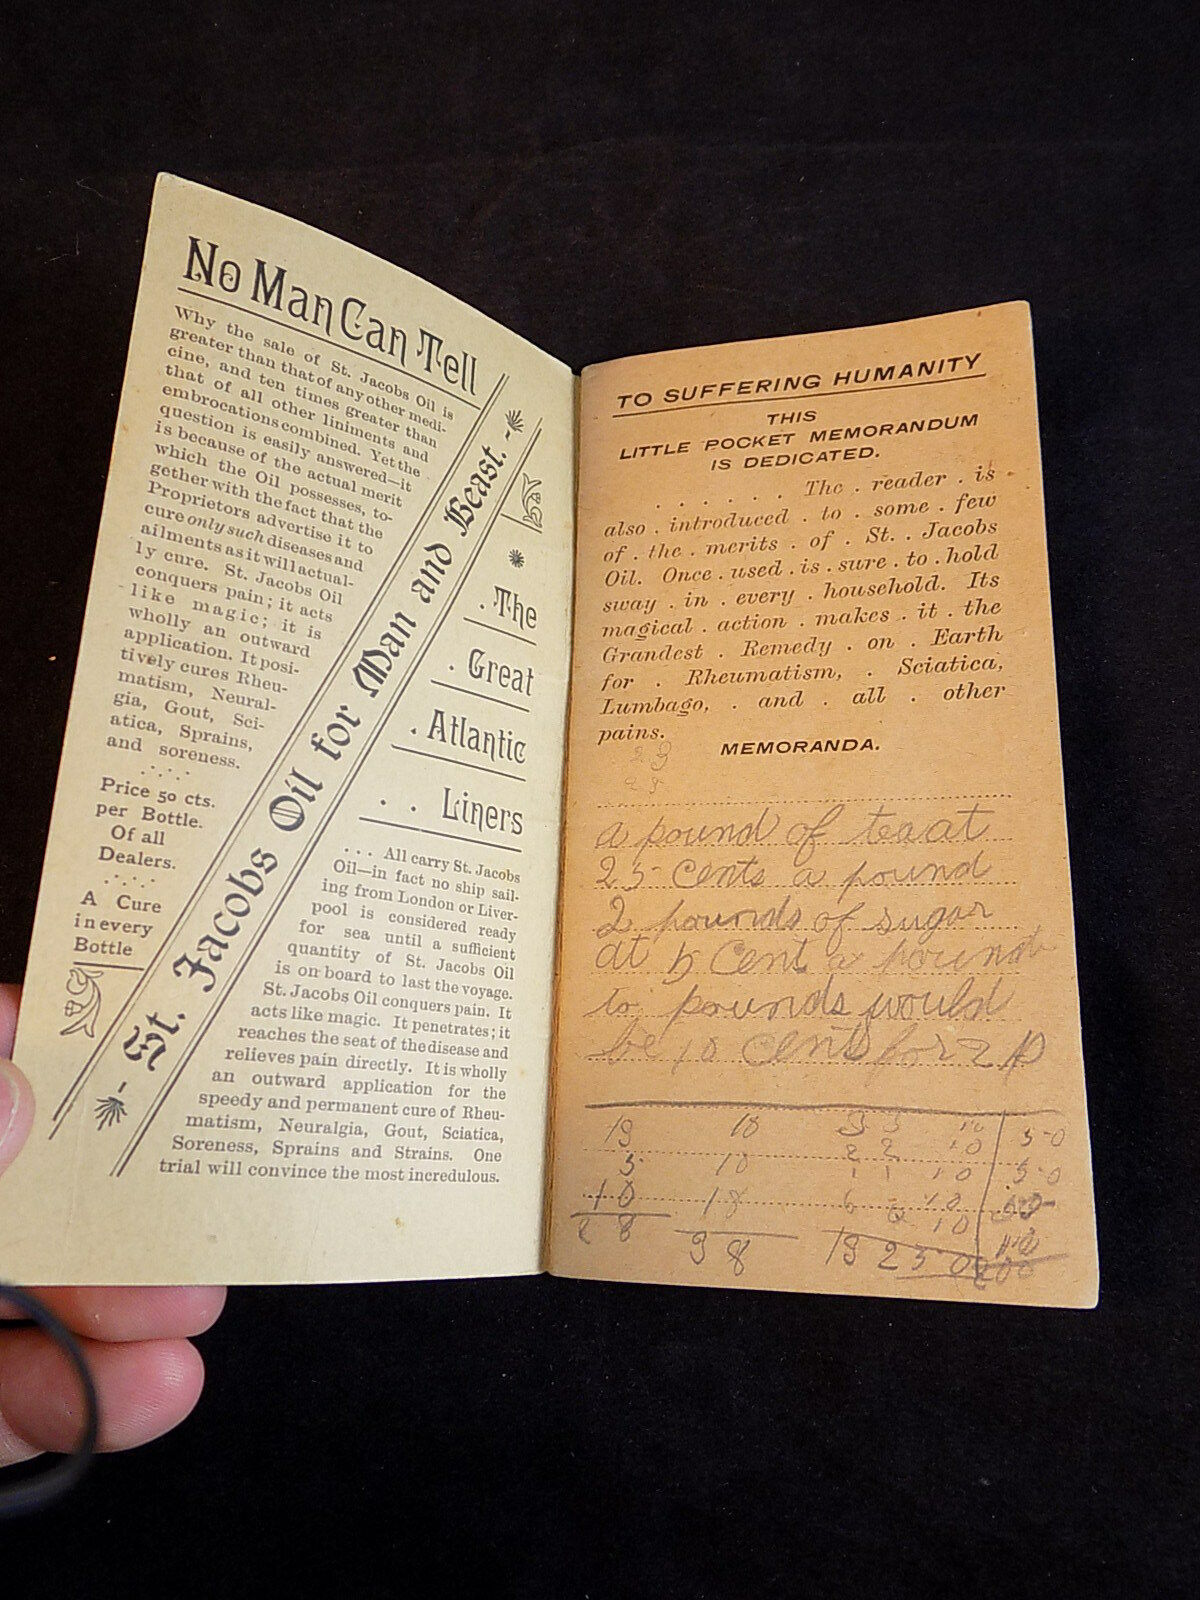 No Man Can Tell
Why the sale of St. Jacobs Oil is
greater than that of any other medi-
cine, and ten times greater than
that of all other liniments and
embrocations combined. Yet the
question is easily answered—it
is because of the actual merit
which the Oil possesses, to-
gether with the fact that the
Proprietors advertise it to
cure only such diseases and
ailments as it will actual-
ly cure. St. Jacobs Oil
conquers pain; it acts
like magic; it is
wholly an outward
application. It posi-
tively cures Rheu-
matism, Neural-
gia, Gout, Sci-
atica, Sprains,
and soreness.
Price 50 cts.
per Bottle.
Of all
Dealers.
A Cure
in every
Bottle
- St. Jacobs Oil for Man and Beast. -
. The
. Great
. Atlantic
. . Liners
. . . All carry St. Jacobs
Oil—in fact no ship sail-
ing from London or Liver-
pool is considered ready
for sea until a sufficient
quantity of St. Jacobs Oil
is on board to last the voyage.
St. Jacobs Oil conquers pain. It
acts like magic. It penetrates; it
reaches the seat of the disease and
relieves pain directly. It is wholly
an outward application for the
speedy and permanent cure of Rheu-
matism, Neuralgia, Gout, Sciatica,
Soreness, Sprains and Strains. One
trial will convince the most incredulous.
TO SUFFERING HUMANITY
THIS
LITTLE POCKET MEMORANDUM
IS DEDICATED.
. . . . . The . reader . is
also . introduced . to . some . few
of . the . merits . of . St. . Jacobs
Oil. Once . used . is . sure . to . hold
sway . in . every . household. Its
magical . action . makes . it . the
Grandest . Remedy . on . Earth
for . Rheumatism, . Sciatica,
Lumbago, . and . all . other
pains.
MEMORANDA.
a pound of tea at
25 Cents a pound
2 pounds of sugar
at 5 Cent a pound
to pounds would
be 10 Cents for 2 p
19 18 10 50
5 10 10 50
10 18 10
28 98 19 250 200